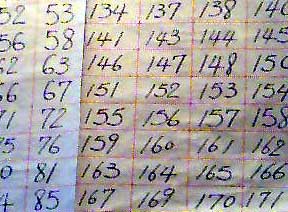 52 53 134 137 138 140
56 58 141 143 144 145
62 63 146 147 148 150
66 67 151 152 153 154
71 72 155 156 157 158
75 76 159 160 161 162
80 81 163 164 165 166
84 85 167 169 170 171